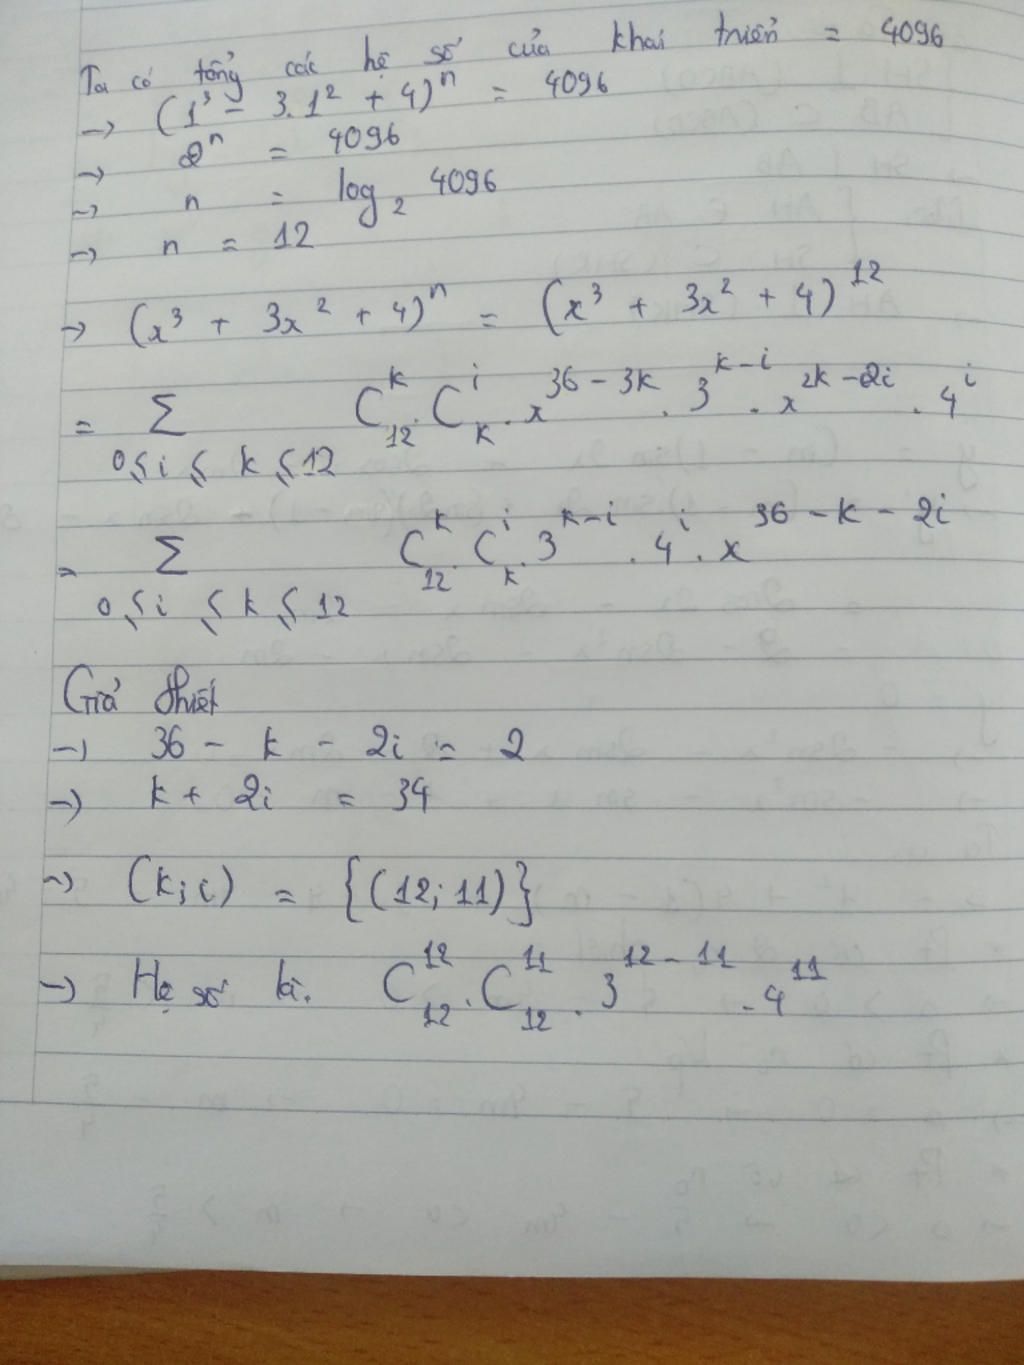 Ta có tổng các hệ số của khai triển = 4096
→ (1³ - 3.1² + 4)ⁿ = 4096
→ 2ⁿ = 4096
→ n = log₂ 4096
→ n = 12
→ (x³ + 3x² + 4)ⁿ = (x³ + 3x² + 4)¹²
= Σ C₁₂^k . C_k^i . x^{36-3k} . 3^{k-i} . x^{2k-2i} . 4^i
0 ≤ i ≤ k ≤ 12
= Σ C₁₂^k . C_k^i . 3^{k-i} . 4^i . x^{36-k-2i}
0 ≤ i ≤ k ≤ 12
Giả thiết
→ 36 - k - 2i = 2
→ k + 2i = 34
→ (k; i) = {(12; 11)}
→ Hệ số là. C₁₂^{12} . C₁₂^{11} . 3^{12-11} . 4^{11}